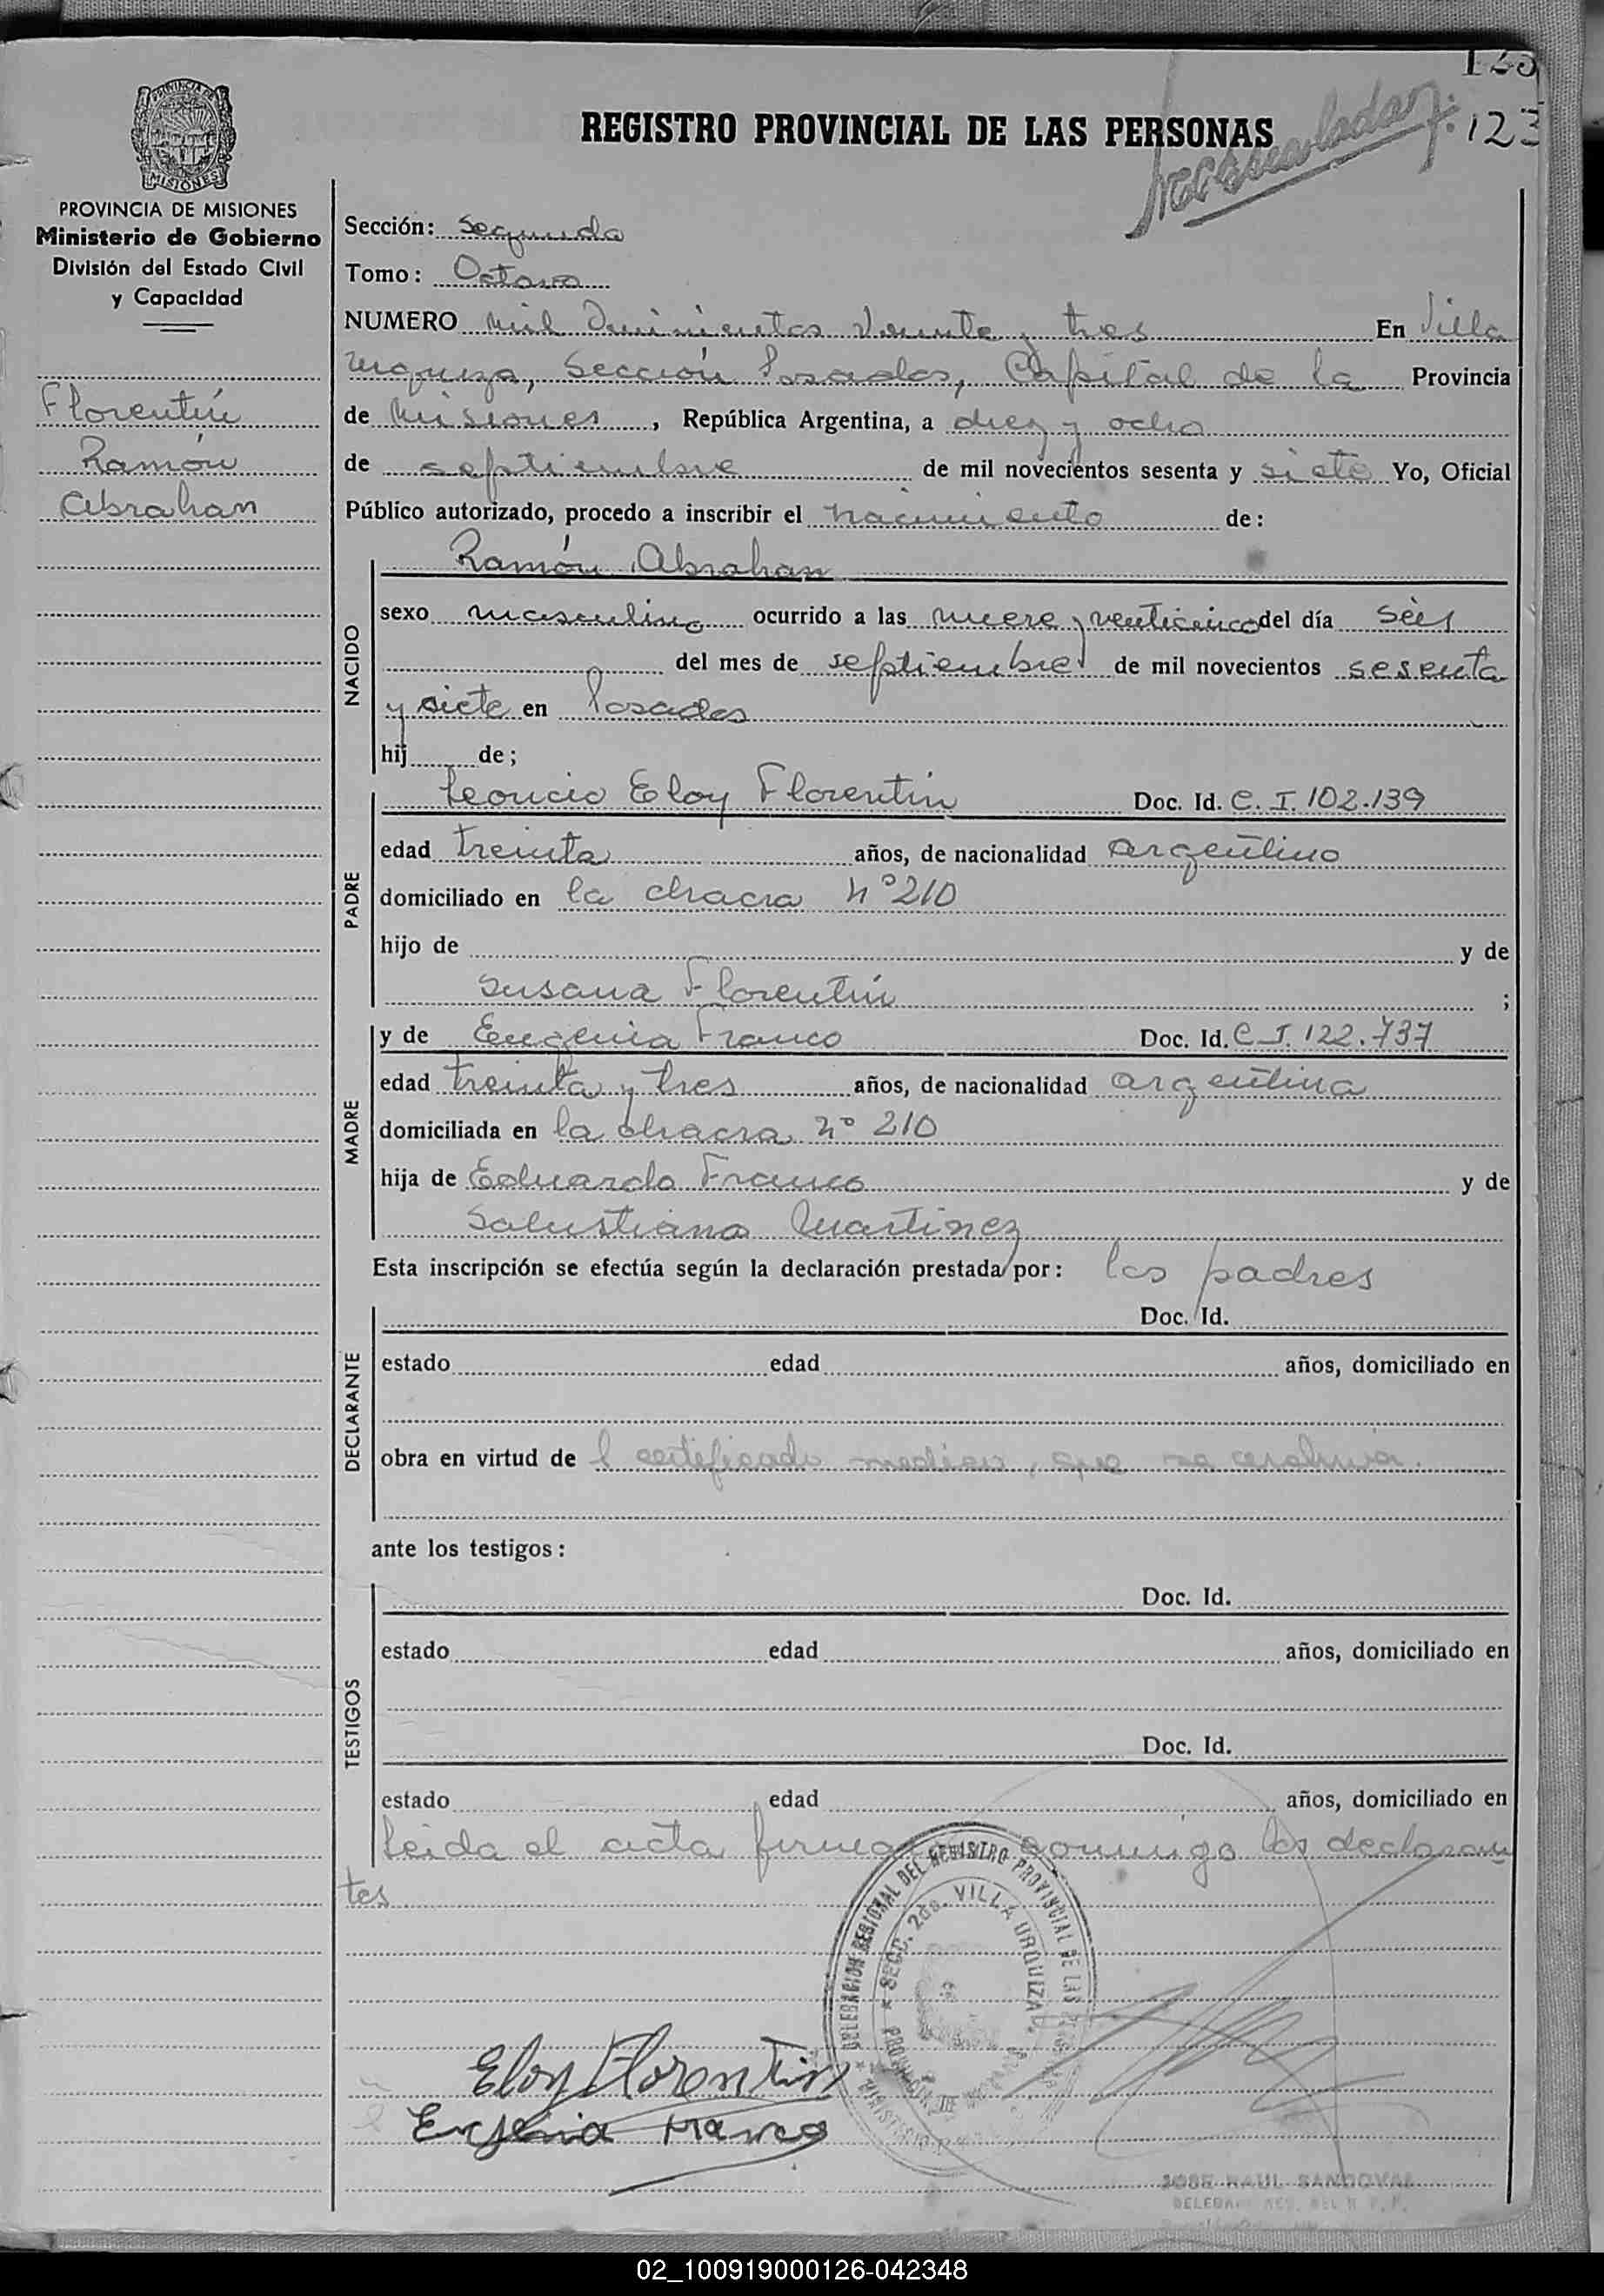 123
REGISTRO PROVINCIAL DE LAS PERSONAS
123
MISIONES
PROVINCIA DE MISIONES
Ministerio de Gobierno
División del Estado Civil
y Capacidad
Florentín
Ramón
Abrahan
Sección: Segunda
Tomo: Octavo
NUMERO mil Quinientos veinte y tres En Villa
Urquiza, Sección Posadas, Capital de la Provincia
de Misiones, República Argentina, a diez y ocho
de septiembre de mil novecientos sesenta y siete Yo, Oficial
Público autorizado, procedo a inscribir el nacimiento de:
NACIDO
Ramón Abrahan
sexo masculino ocurrido a las nueve y venticinco del día seis
del mes de septiembre de mil novecientos sesenta
y siete en Posadas
hij de;
PADRE
Leoncio Eloy Florentín Doc. Id. C. I. 102.139
edad treinta años, de nacionalidad argentino
domiciliado en la chacra nº 210
hijo de y de
Susana Florentín ;
MADRE
y de Eugenia Franco Doc. Id. C I. 122.737
edad treinta y tres años, de nacionalidad argentina
domiciliada en la chacra nº 210
hija de Eduardo Franco y de
Salustiana Martinez
Esta inscripción se efectúa según la declaración prestada por: los padres
DECLARANTE
Doc. Id.
estado edad años, domiciliado en
obra en virtud de l certificado medico, que se archiva.
ante los testigos:
TESTIGOS
Doc. Id.
estado edad años, domiciliado en
Doc. Id.
estado edad años, domiciliado en
Leida el acta firman conmigo los declaran
tes
DELEGACION REGIONAL DEL REGISTRO PROVINCIAL DE LAS
SECC. 2da. VILLA URQUIZA
Eloy Florentin
Eugenia Franco
JOSE RAUL SANDOVAL
02_100919000126-042348